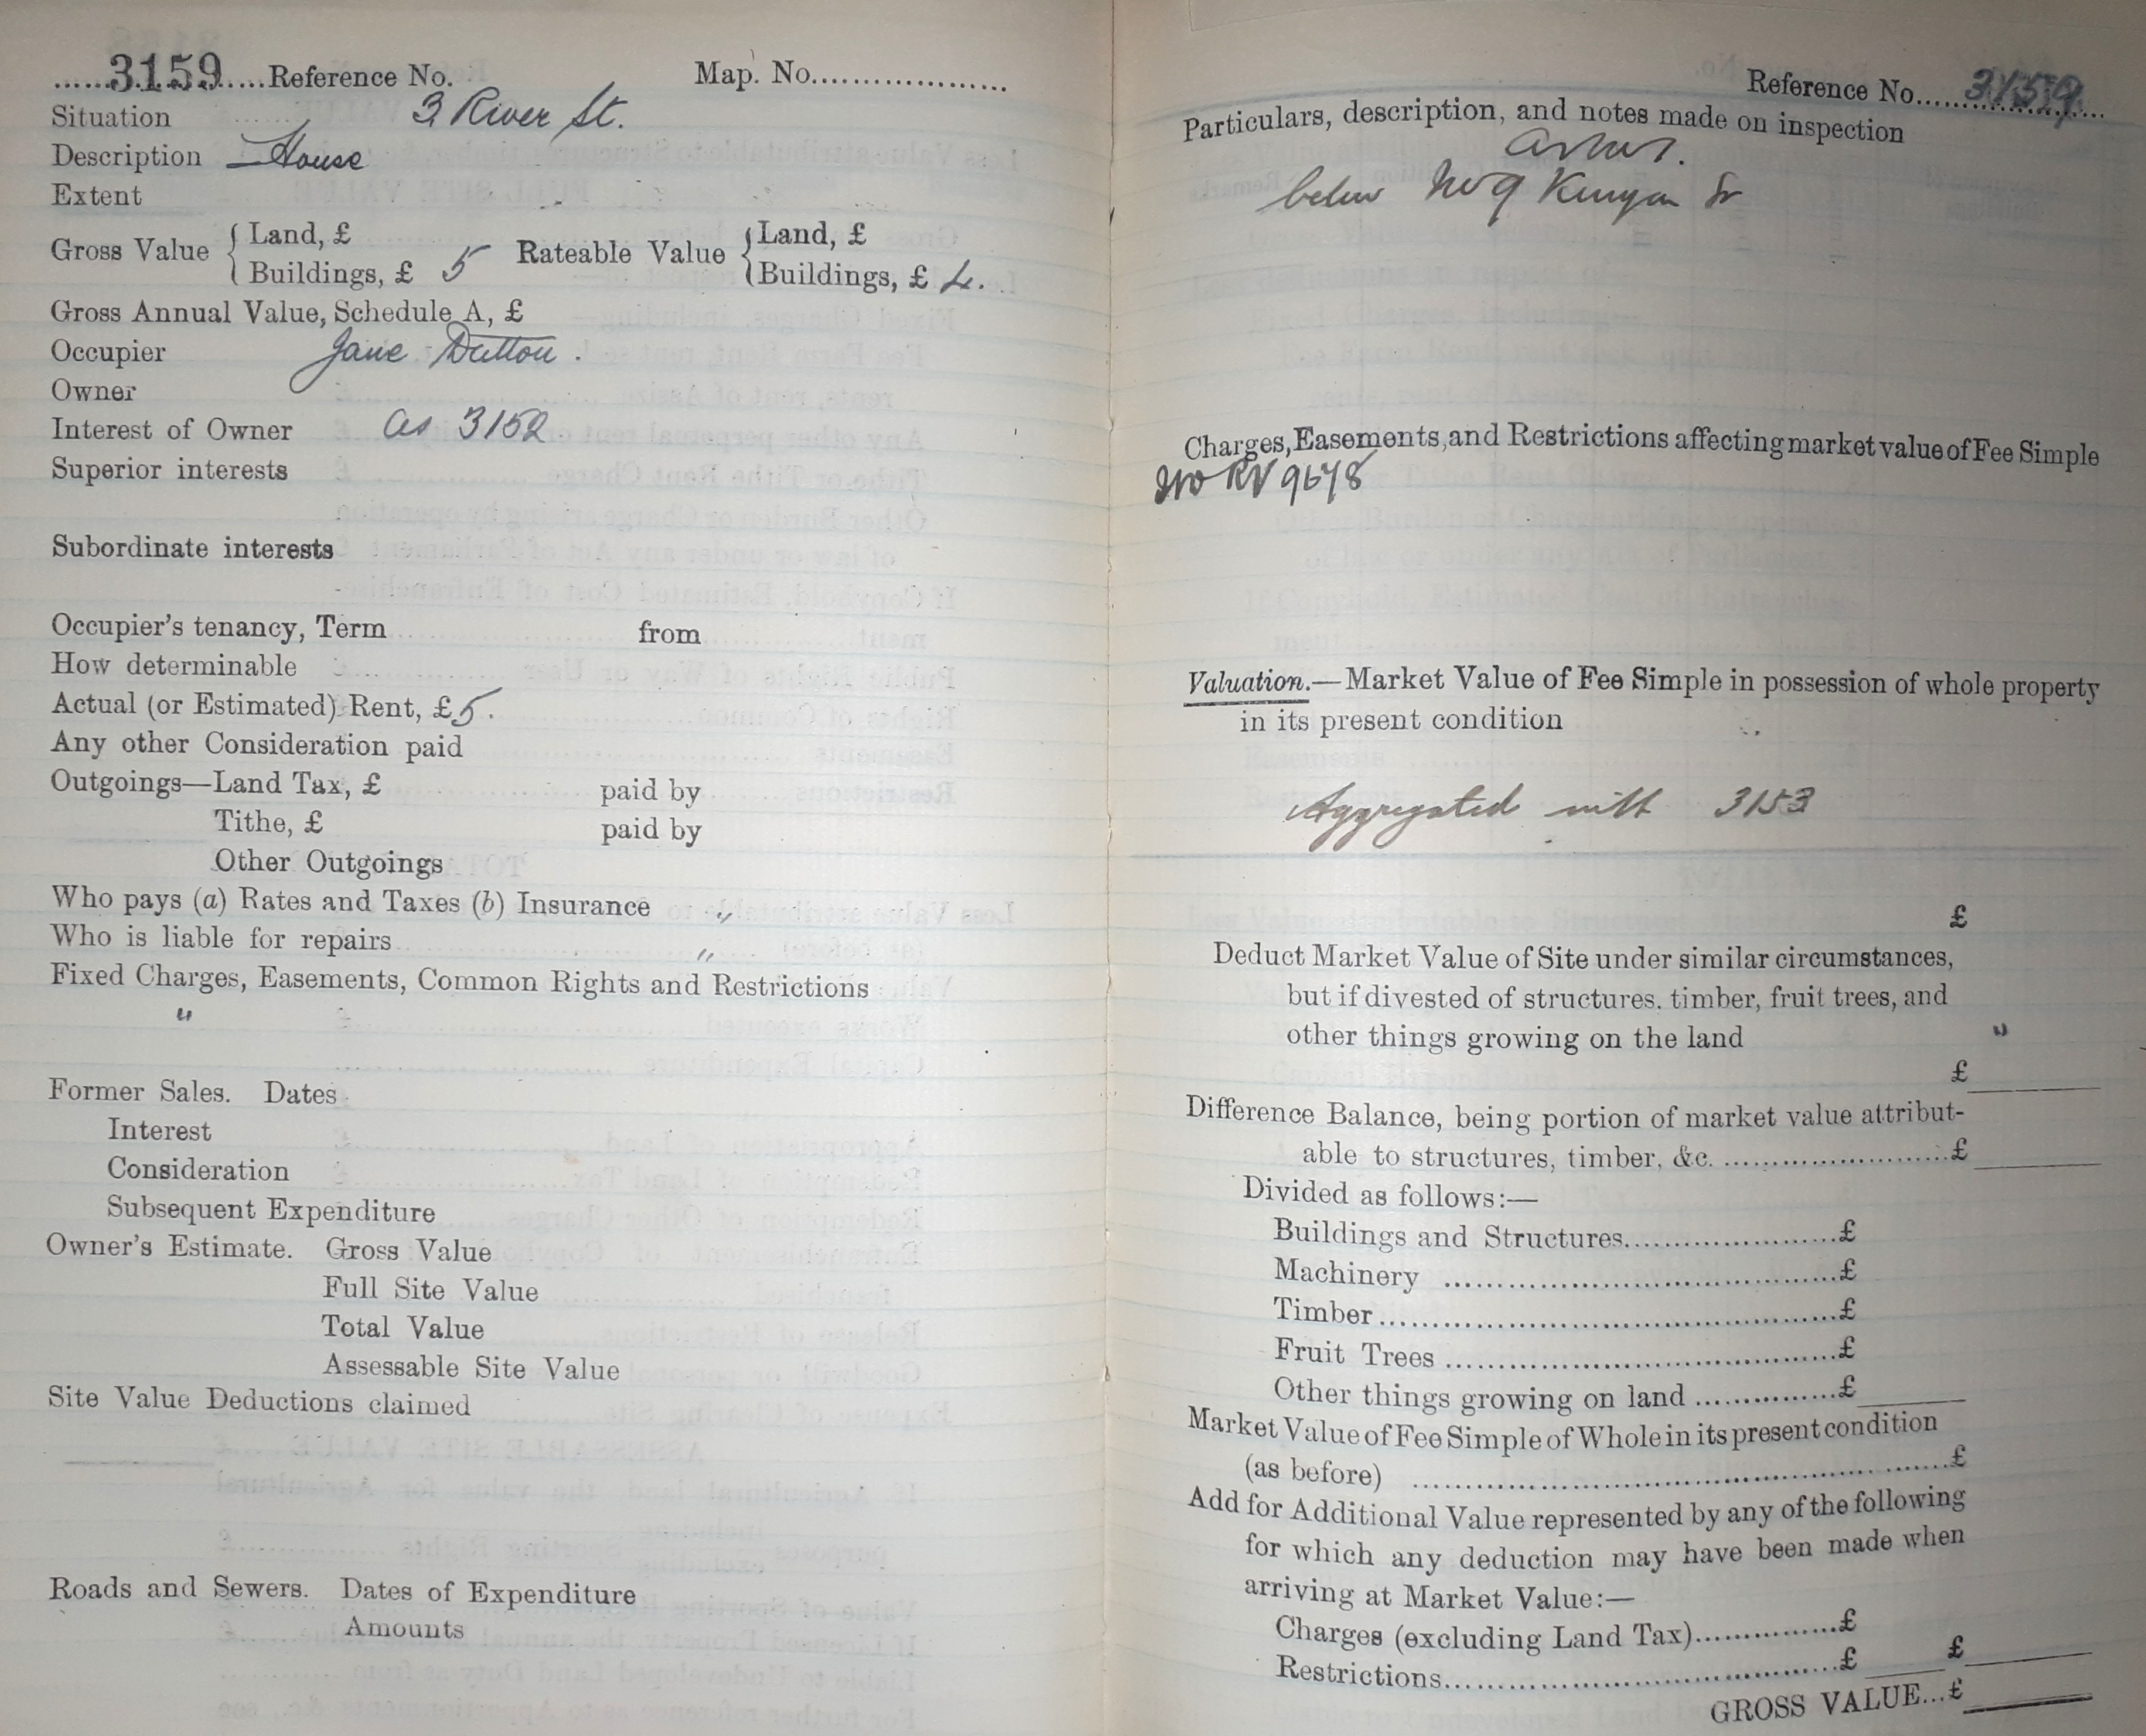 3159 Reference No. Map. No.
Situation 3 River St.
Description House
Extent
Gross Value { Land, £
Buildings, £ 5 Rateable Value { Land, £
Buildings, £ 4.
Gross Annual Value, Schedule A, £
Occupier Jane Dutton.
Owner
Interest of Owner as 3152
Superior interests
Subordinate interests
Occupier's tenancy, Term from
How determinable
Actual (or Estimated) Rent, £ 5.
Any other Consideration paid
Outgoings—Land Tax, £ paid by
Tithe, £ paid by
Other Outgoings
Who pays (a) Rates and Taxes (b) Insurance "
Who is liable for repairs "
Fixed Charges, Easements, Common Rights and Restrictions
"
Former Sales. Dates
Interest
Consideration
Subsequent Expenditure
Owner's Estimate. Gross Value
Full Site Value
Total Value
Assessable Site Value
Site Value Deductions claimed
Roads and Sewers. Dates of Expenditure
Amounts
Reference No. 3159
Particulars, description, and notes made on inspection
below No 9 Kenyon St
Charges, Easements, and Restrictions affecting market value of Fee Simple
RV 9678
Valuation.—Market Value of Fee Simple in possession of whole property
in its present condition
Aggregated with 3153
£
Deduct Market Value of Site under similar circumstances,
but if divested of structures. timber, fruit trees, and
other things growing on the land "
£
Difference Balance, being portion of market value attribut-
able to structures, timber, &c. £
Divided as follows:—
Buildings and Structures £
Machinery £
Timber £
Fruit Trees £
Other things growing on land £
Market Value of Fee Simple of Whole in its present condition
(as before) £
Add for Additional Value represented by any of the following
for which any deduction may have been made when
arriving at Market Value:—
Charges (excluding Land Tax) £
Restrictions £ £
GROSS VALUE... £